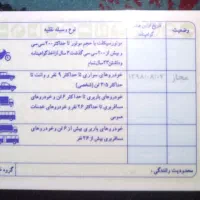 وضعیت
تاریخ اخذ هر گواهینامه
نوع وسیله نقلیه
موتورسیکلت با حجم موتور تا حداکثر ۲۰۰ سی سی
و بیش از ۲۰۰ سی سی گذشت ۲ سال از اخذ گواهینامه
وداشتن ۲۳ سال تمام
مجاز
خودروهای سواری تا حداکثر ۹ نفر و وانت تا
حداکثر ۳/۵ تن (شخصی)
خودروهای باربری تا حداکثر ۶ تن و خودروهای
مسافربری تا حداکثر ۲۶ نفر و خودروهای خدمات
عمومی
خودروهای باربری بیش از ۶ تن و خودروهای
مسافربری بیش از ۲۶ نفر
محدودیت رانندگی :
گروه